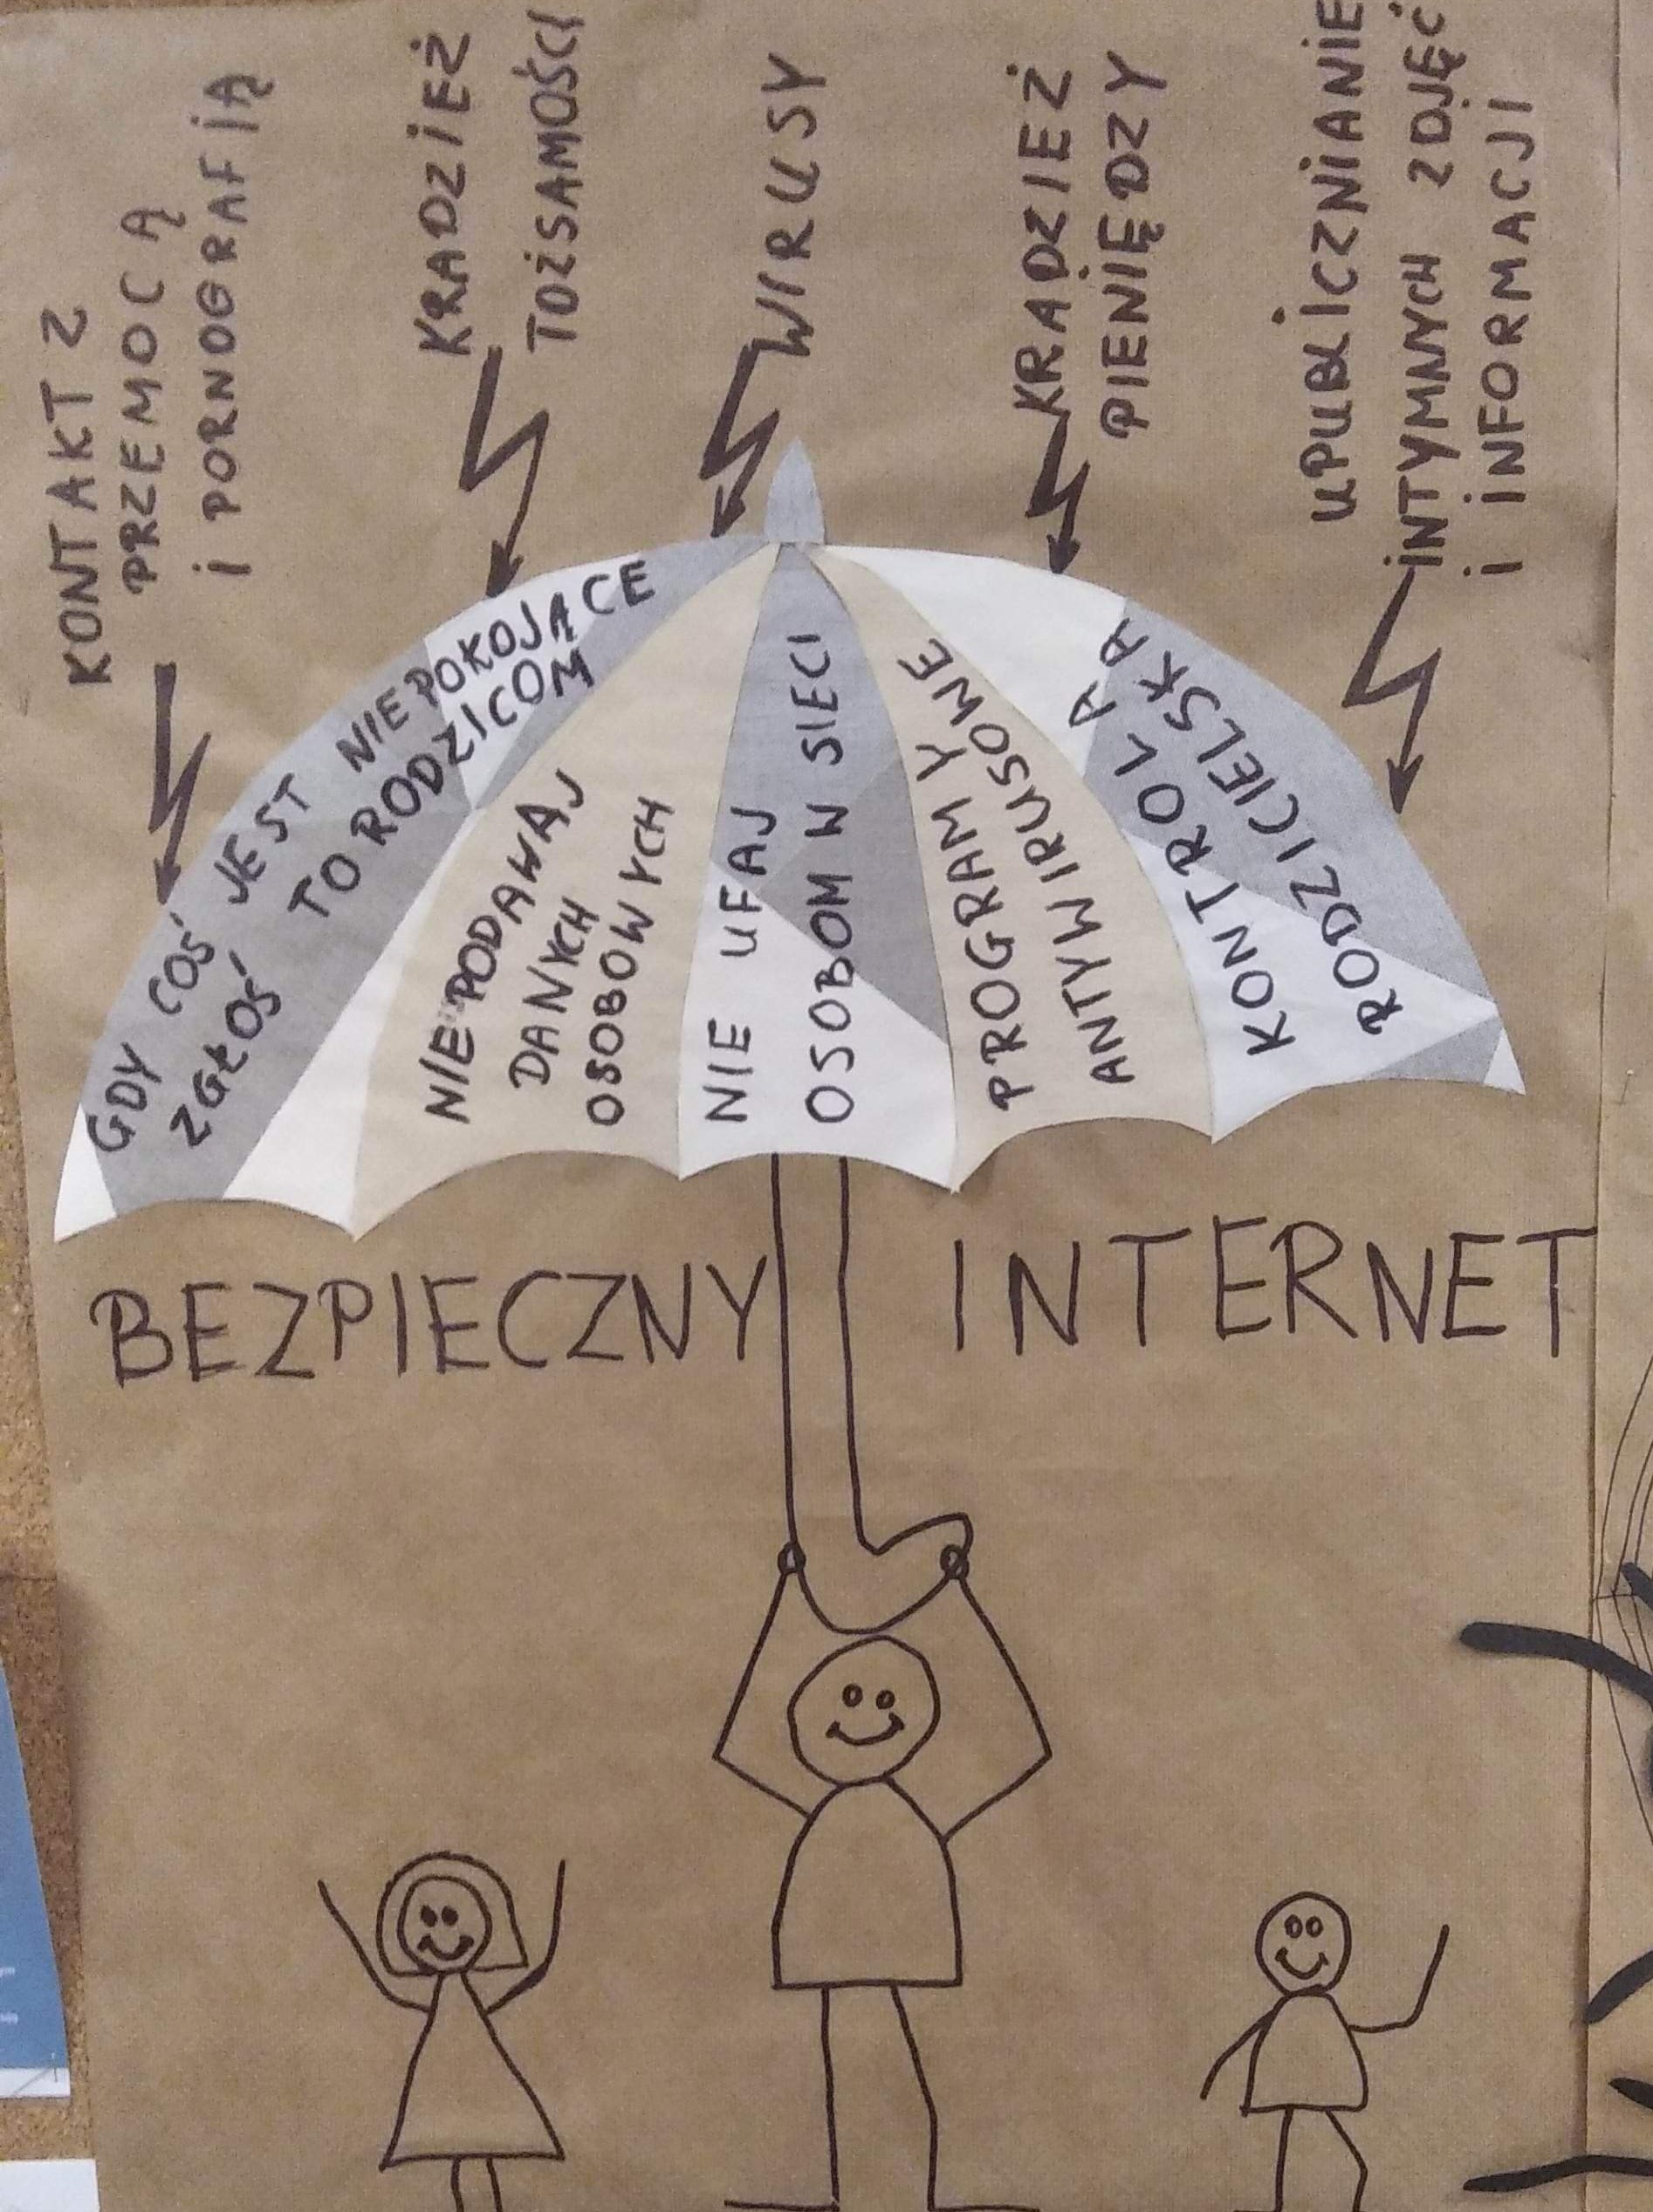 KONTAKT Z
PRZEMOCĄ
i PORNOGRAFIĄ
KRADZIEŻ
TOŻSAMOŚCI
WIRUSY
KRADZIEŻ
PIENIĘDZY
UPUBLICZNIANIE
INTYMNYCH ZDJĘĆ
i INFORMACJI
GDY COŚ JEST NIEPOKOJĄCE
ZGŁOŚ TO RODZICOM
NIE PODAWAJ
DANYCH
OSOBOWYCH
NIE UFAJ
OSOBOM W SIECI
PROGRAMY
ANTYWIRUSOWE
KONTROLA A
RODZICIELSKA
BEZPIECZNY INTERNET